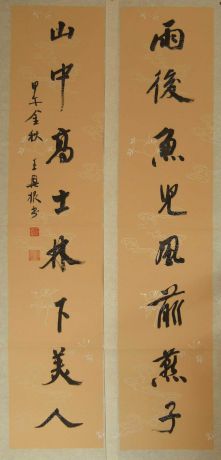 雨後魚児風前燕子
山中高士林下美人
甲午金秋 王興振书